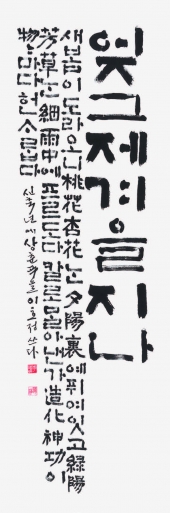 엇그제겨을지나
새봄이도라오니桃花杏花는夕陽裏에퓌여잇고綠陽
芳草는細雨中에프르도다칼로몰아낸가造化神功이
物〻마다헌ᄉᆞ롭다 상춘곡을 이호정 쓰다